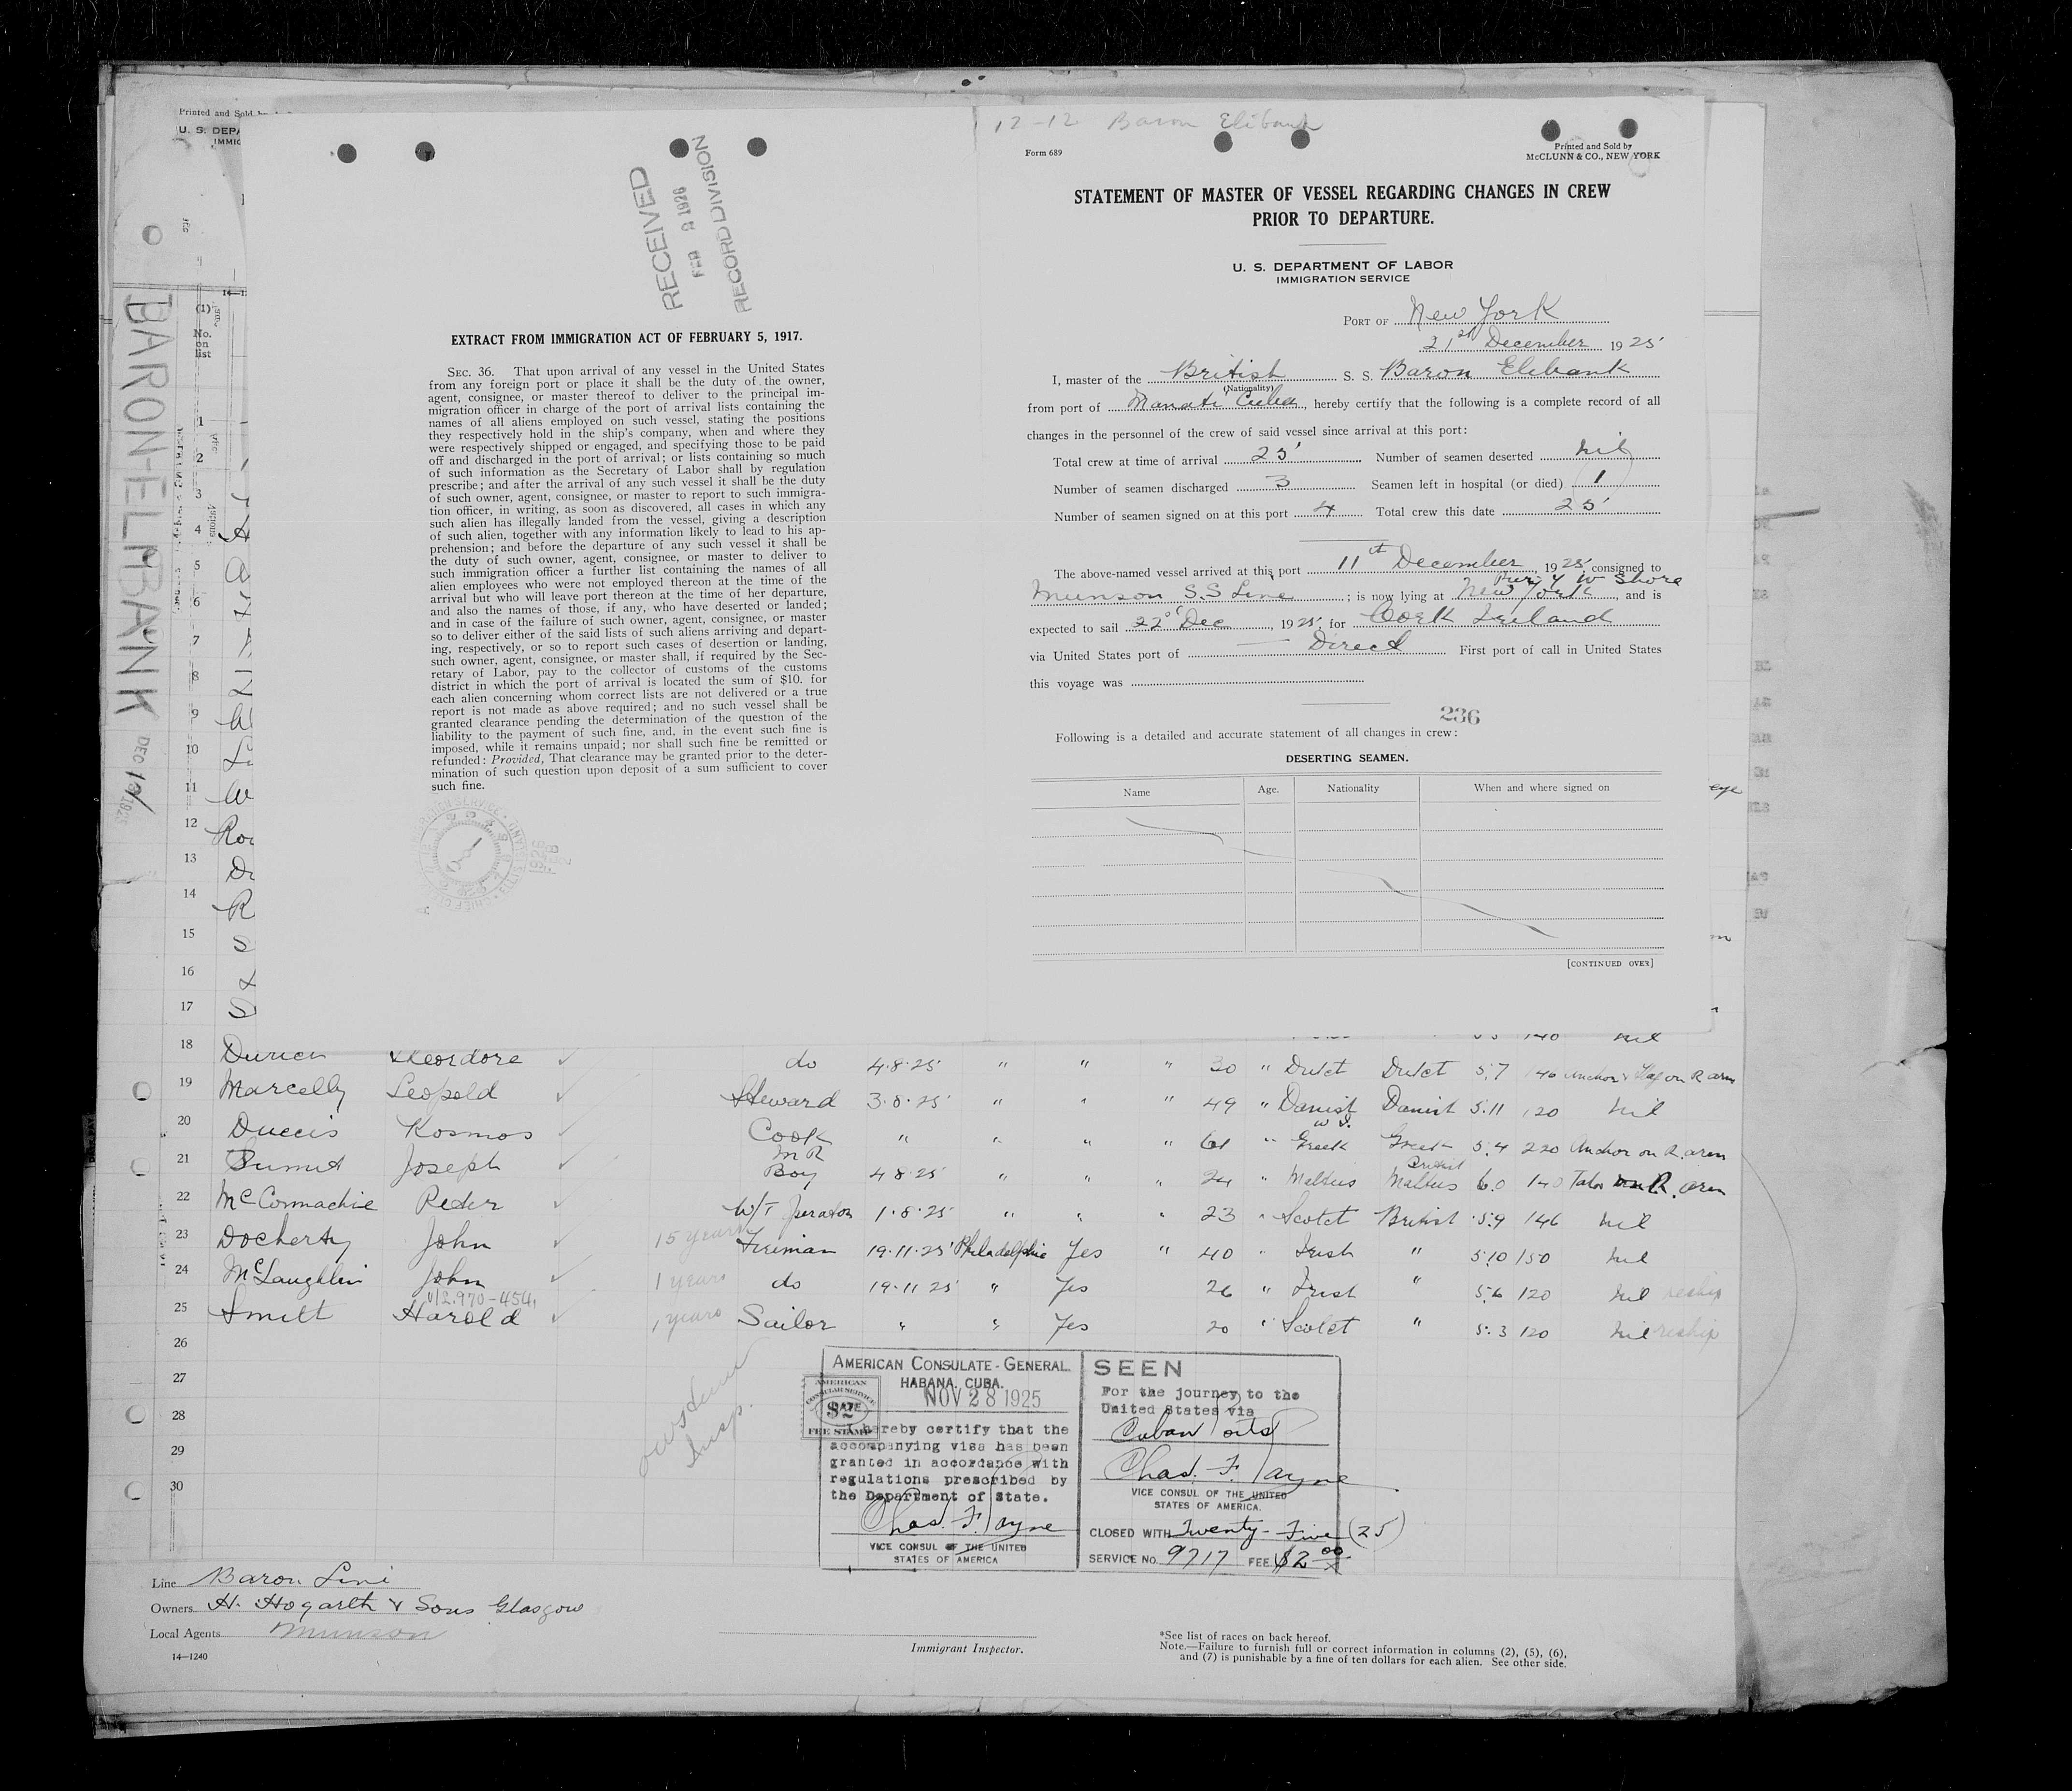 Printed and Sold by
U. S. DEPA
IMMIG
BARON-ELMBANK DEC 12 1925
(1)
No.
on
list
1
2
3
4
5
6
7
8
9
10
11
12
13
14
15
16
17
RECEIVED
FEB 2 1926
RECORD DIVISION
EXTRACT FROM IMMIGRATION ACT OF FEBRUARY 5, 1917.
SEC. 36. That upon arrival of any vessel in the United States
from any foreign port or place it shall be the duty of the owner,
agent, consignee, or master thereof to deliver to the principal im-
migration officer in charge of the port of arrival lists containing the
names of all aliens employed on such vessel, stating the positions
they respectively hold in the ship's company, when and where they
were respectively shipped or engaged, and specifying those to be paid
off and discharged in the port of arrival; or lists containing so much
of such information as the Secretary of Labor shall by regulation
prescribe; and after the arrival of any such vessel it shall be the duty
of such owner, agent, consignee, or master to report to such immigra-
tion officer, in writing, as soon as discovered, all cases in which any
such alien has illegally landed from the vessel, giving a description
of such alien, together with any information likely to lead to his ap-
prehension; and before the departure of any such vessel it shall be
the duty of such owner, agent, consignee, or master to deliver to
such immigration officer a further list containing the names of all
alien employees who were not employed thereon at the time of the
arrival but who will leave port thereon at the time of her departure,
and also the names of those, if any, who have deserted or landed;
and in case of the failure of such owner, agent, consignee, or master
so to deliver either of the said lists of such aliens arriving and depart-
ing, respectively, or so to report such cases of desertion or landing,
such owner, agent, consignee, or master shall, if required by the Sec-
retary of Labor, pay to the collector of customs of the customs
district in which the port of arrival is located the sum of $10. for
each alien concerning whom correct lists are not delivered or a true
report is not made as above required; and no such vessel shall be
granted clearance pending the determination of the question of the
liability to the payment of such fine, and, in the event such fine is
imposed, while it remains unpaid; nor shall such fine be remitted or
refunded: Provided, That clearance may be granted prior to the deter-
mination of such question upon deposit of a sum sufficient to cover
such fine.
12-12 Baron Elibank
Form 689
Printed and Sold by
McCLUNN & CO., NEW YORK
STATEMENT OF MASTER OF VESSEL REGARDING CHANGES IN CREW
PRIOR TO DEPARTURE.
U. S. DEPARTMENT OF LABOR
IMMIGRATION SERVICE
PORT OF New York
21st December 1925
I, master of the British S. S. Baron Elibank
(Nationality)
from port of Manati Cuba, hereby certify that the following is a complete record of all
changes in the personnel of the crew of said vessel since arrival at this port:
Total crew at time of arrival 25 Number of seamen deserted nil
Number of seamen discharged 3 Seamen left in hospital (or died) 1
Number of seamen signed on at this port 4 Total crew this date 25
The above-named vessel arrived at this port 11th December, 1925 consigned to
Munson S.S Line; is now lying at Pier 7 W Shore New York, and is
expected to sail 22d Dec, 1925, for Cork Ireland
via United States port of — Direct First port of call in United States
this voyage was
236
Following is a detailed and accurate statement of all changes in crew:
DESERTING SEAMEN.
Name Age. Nationality When and where signed on
[CONTINUED OVER]
140 nil
18 Theordore do 4.8.25 " " " 30 " Dutct Dutct 5.7 140
19 Marcelly Leopold Steward 3.8.25 " " " 49 " Danish W I. Danish 5.11 120 nil
20 Duccis Kosmos Cook " " " " 61 " Greek Greek 5.4 220 Anchor on R. arm
21 Joseph M R Boy 4.8.25 " " " 24 " Malties British Malties 6.0 140 R. arm
22 McCormachie Peter W/T Operator 1.8.25 " " " 23 " Scotct British 5.9 146 nil
23 Docherty John 15 years Fireman 19.11.25 Philadelphia Yes " 40 " Irish " 5.10 150 nil
24 McLaughlin John 1 years do 19.11.25 " Yes 26 " Irish " 5.6 120 nil reship
V/2.970-454,
25 Smith Harold 1 years Sailor " " Yes 20 " Scotct " 5.3 120 nil reship
26
27
28
29
30
Insp.
AMERICAN CONSULATE-GENERAL.
HABANA, CUBA.
NOV 28 1925
AMERICAN
CONSULAR SERVICE
$2
FEE STAMP
I hereby certify that the
accompanying visa has been
granted in accordance with
regulations prescribed by
the Department of State.
Chas. F. Payne
VICE CONSUL OF THE UNITED
STATES OF AMERICA
SEEN
For the journey to the
United States via
Cuban Ports
Chas. F. Payne
VICE CONSUL OF THE UNITED
STATES OF AMERICA.
CLOSED WITH Twenty-Five (25)
SERVICE NO. 9717 FEE $2 00
Line Baron Line
Owners H. Hogarth & Sons Glasgow
Local Agents Munson
14—1240
Immigrant Inspector.
*See list of races on back hereof.
Note.—Failure to furnish full or correct information in columns (2), (5), (6),
and (7) is punishable by a fine of ten dollars for each alien. See other side.